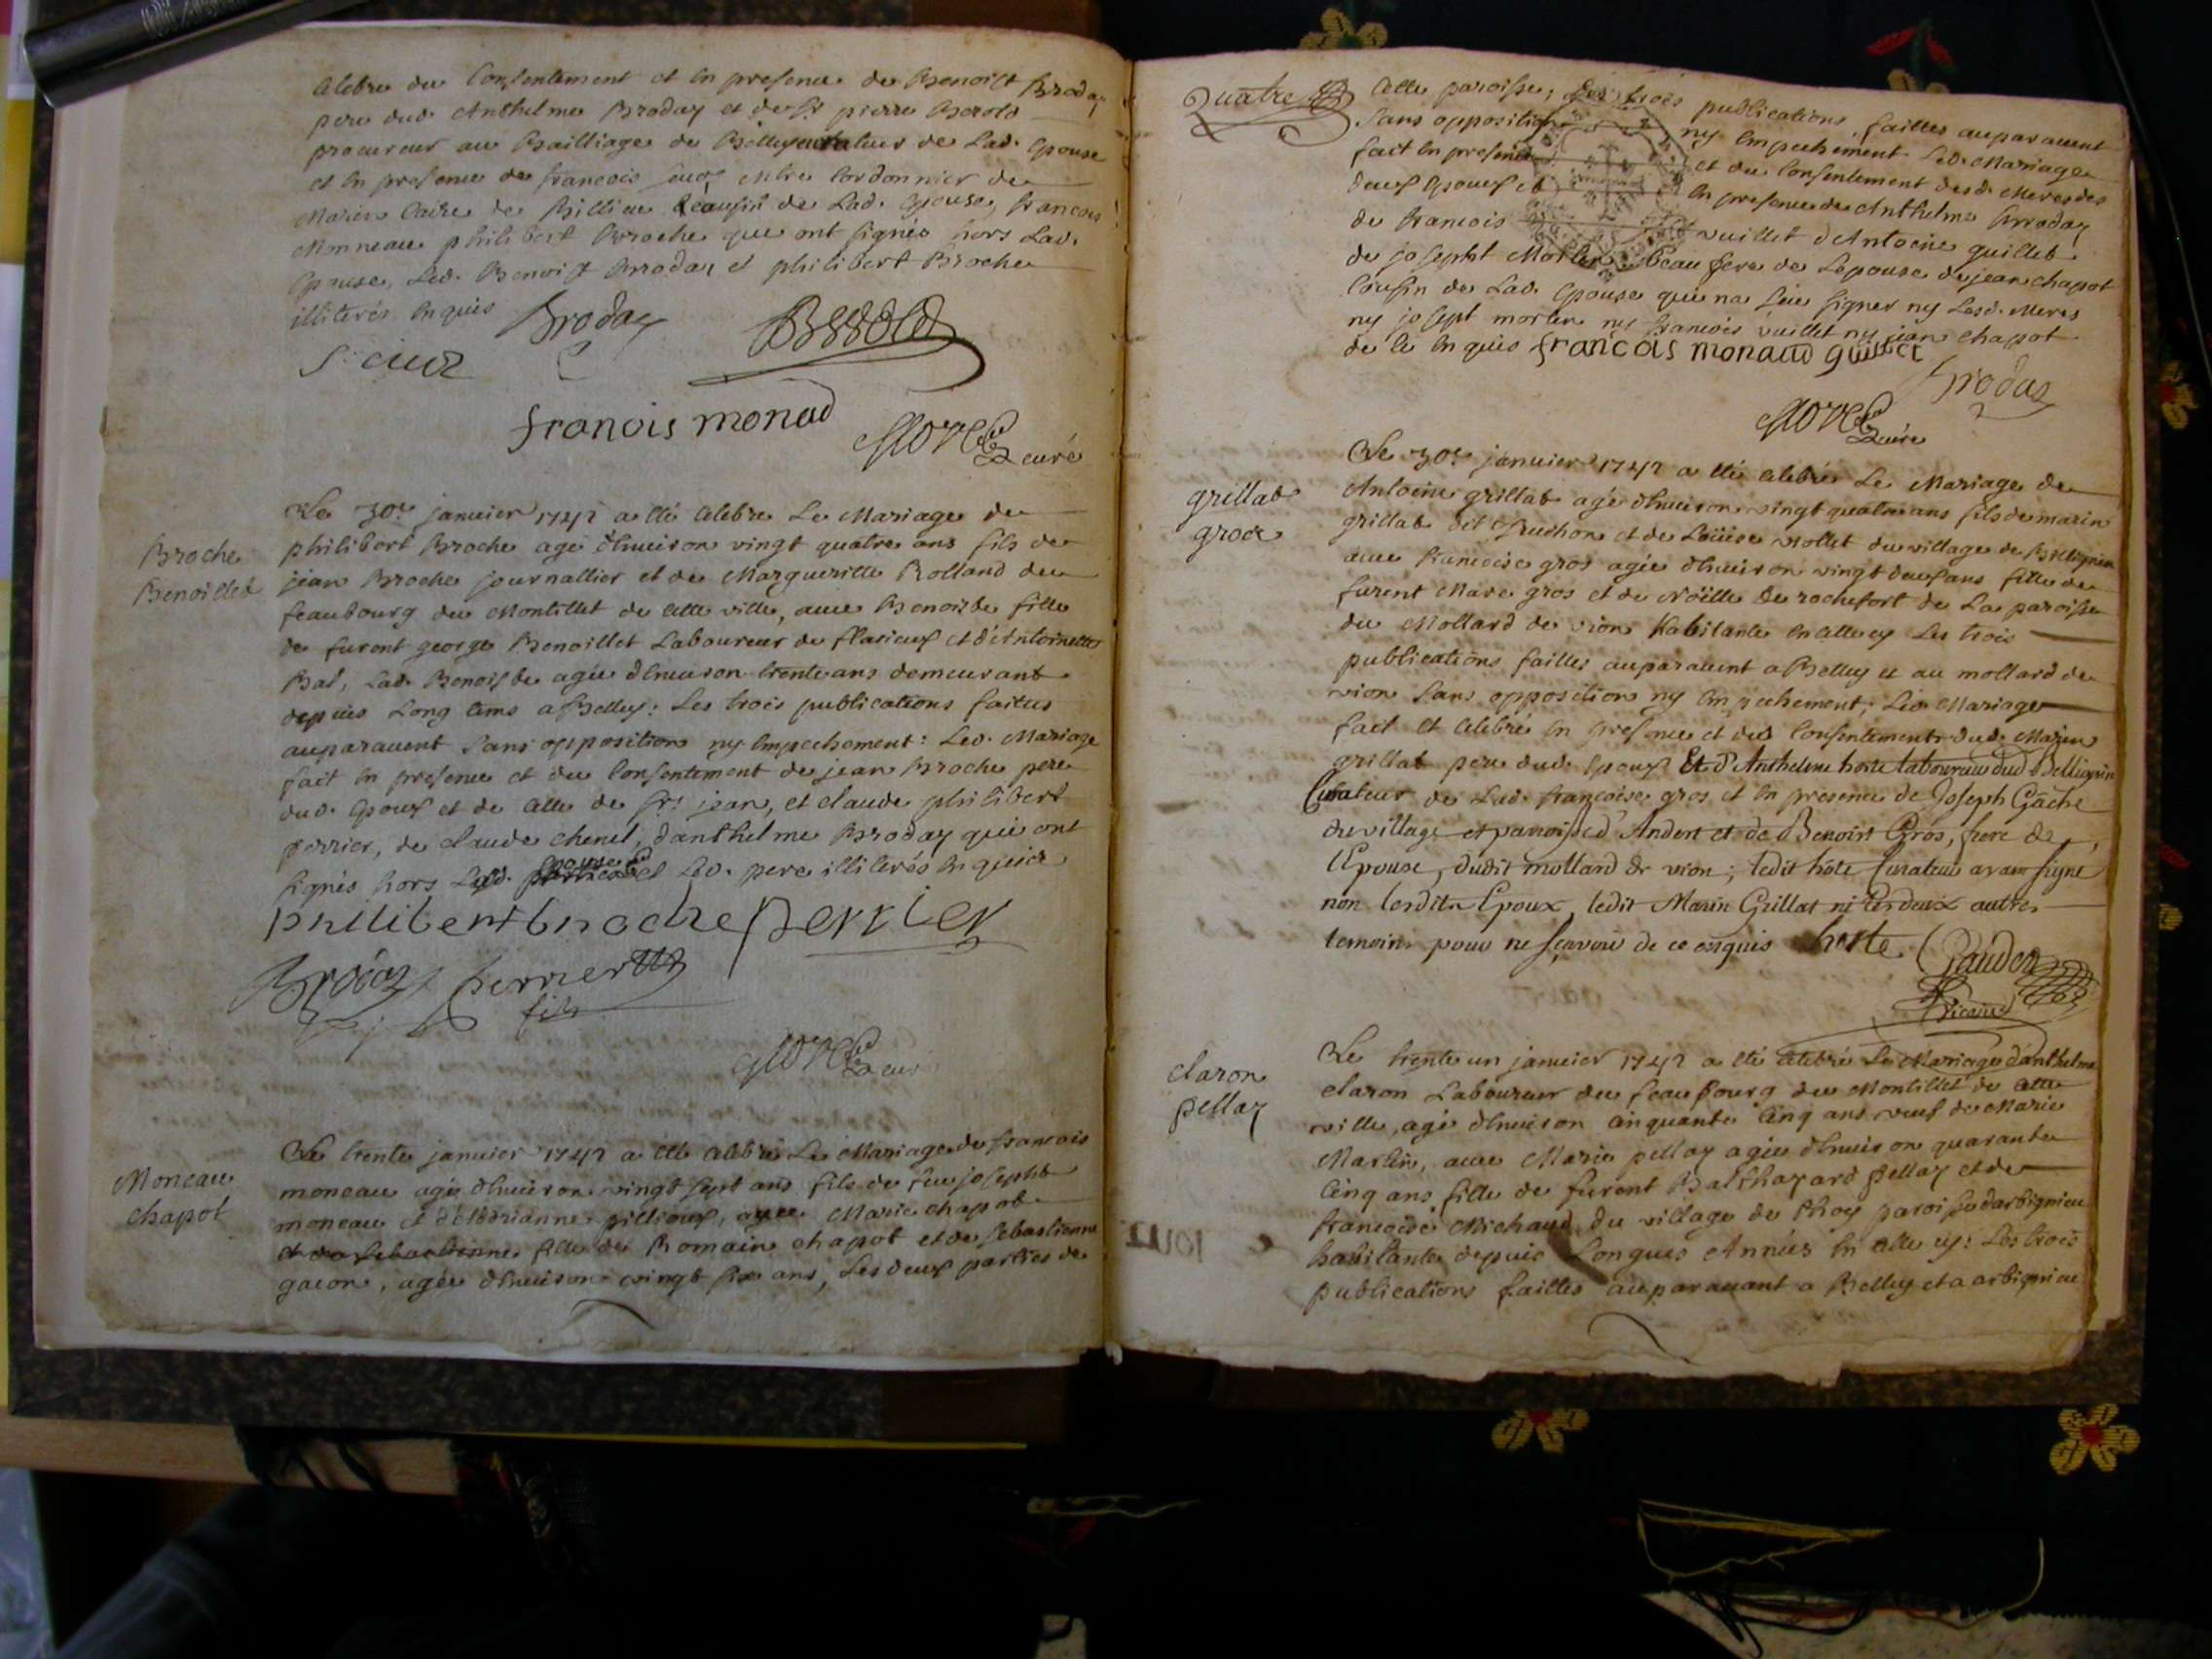 celebre du Consentement et en presence de Benoist Broday
pere dud. Anthelme Broday et de Sr pierre Berold
procureur au Bailliage de Belley curateur de Lad. Epouse
et en presence de francois
Mtre Cordonnier de
Cousin de Lad. Epouse, francois
Monneau philibert Broche qui ont signés hors Lad.
Epouse, Led. Benoist Broday et philibert Broche
illiterés Enquis
Broday
Berold
francois monad
curé
Broche
Benoillet
Le 30e janvier 1742 a été Celebre Le Mariage de
philibert Broche agé d'Environ vingt quatre ans fils de
jean Broche journallier et de Margueritte Rolland du
feaubourg du Montillet de Cette ville, avec Benoiste fille
de furent george Benoillet Laboureur de flaxieux et d'Antoinette
Bal, Lad. Benoiste agée d'Environ trente ans demeurant
depuis Long tems a Belley: Les trois publications faites
auparavent Sans opposition ny Empechement: Led. Mariage
fait En presence et du Consentement de jean Broche pere
dud. Epoux et de Celle de Srs jean, et claude philibert
perrier, de claude chenel, d'anthelme Broday qui ont
signés hors Epouse et Led. pere illiterés Enquis
philibert broche perrier
Broday perrier
fils
curé
Moneau
chapot
Le trente janvier 1742 a été Celebré Le Mariage de francois
moneau agé d'Environ vingt sept ans fils de feu josepht
moneau et d'Adrianne pillioux, avec Marie chapot
et de sebastienne fille de Romain chapot et de sebastienne
gacon, agée d'Environ vingt six ans, Les deux parties de
Quatre
Cette paroisse, Les trois publications failles auparavent
Sans opposition ny Empechement Led. Mariage
fait En presence et du Consentement desd. Meres des
deux Epoux et En presence de Anthelme Broday
de francois vuillet d'Antoine guillet
de josepht Morlin Beau frere de L'epouse de jean chapot
Cousin de Lad. Epouse qui na sceu signer ny Lesd. Meres
ny josept morlin ny francois vuillet ny jean chapot
de ce Enquis francois monaud guillet
Broday
curé
grillat
gros
Le 30e janvier 1742 a été Celebré Le Mariage de
Antoine grillat agé d'Environ vingt quatre ans fils de marin
grillat dit Ruchon et de Loüise Mollet du village de Bellignin
avec francoise gros agée d'Environ vingt deux ans fille de
furent Marc gros et de Noëlle De rochefort de La paroisse
du Mollard de vion habitante En Cette cy Les trois
publications failles auparavent a Belley et au mollard de
vion Sans opposition ny Empechement; Led. Mariage
fait et Celebré En presence et du Consentement dud. Marin
grillat pere dud. Epoux Et d'Anthelme hoste laboureur dud. Bellignin
Curateur de Lad. francoise gros et En presence de Joseph Gache
du village et parroisse d'Andert et de Benoist Gros, frere de
l'Epouse, dudit mollard de vion; ledit hôte Curateur ayant signé
non lesdits Epoux, ledit Marin Grillat ni les deux autres
temoins pour ne sçavoir de ce enquis hoste Gaudet
Vicaire
claron
pellaz
Le trente un janvier 1742 a été Celebré Le Mariage d'anthelme
claron Laboureur du feaubourg du Montillet de Cette
ville, agé d'Environ Cinquante Cinq ans veuf de Marie
Martin, avec Marie pellaz agée d'Environ quarante
Cinq ans fille de furent Balthazard pellaz et de
francoise Michaud du village de Thoy paroisse darbignieu
habitante depuis Longues Années En Cette cy: Les trois
publications failles auparavant a Belley et a arbignieu